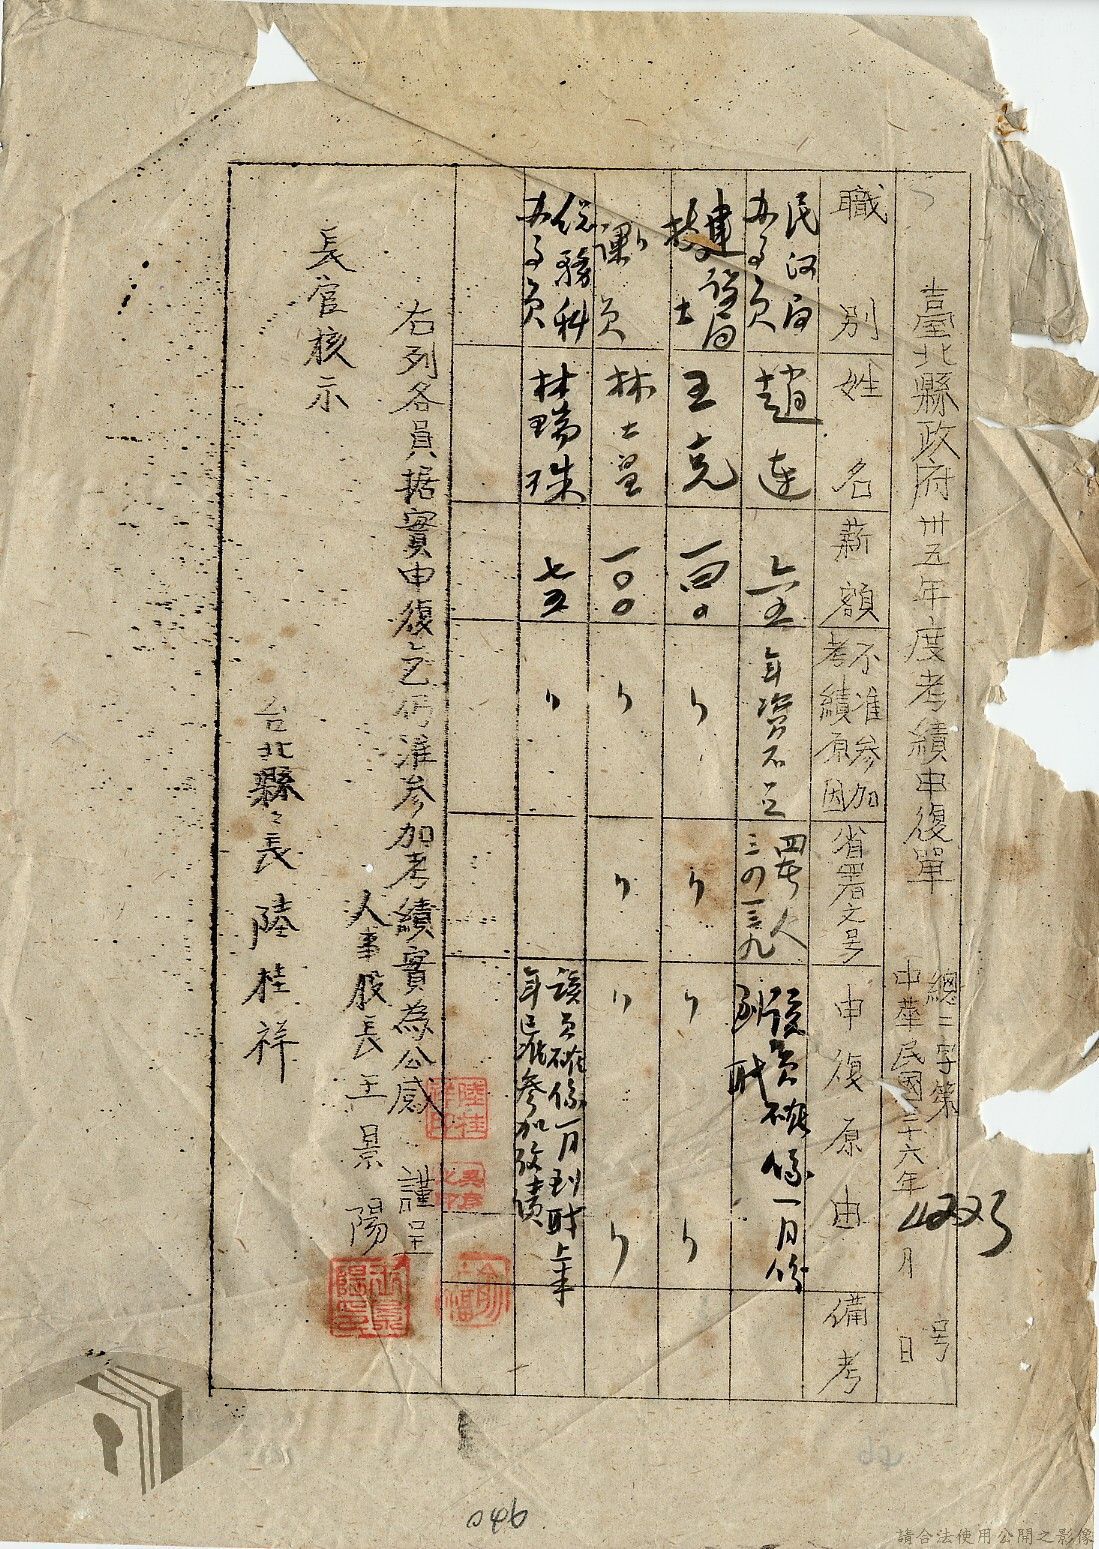 臺北縣政府卅五年度考績申復單
總二字第 號
中華民國三十六年 月 日
職別
姓名
薪額
不准參加
考績原因
省署文号
申復原由
備考
民政局
办事員
趙連
六五
年資不足
該員確係一月份
到职
建設局
技士
王克
一四〇
〃
〃
〃
〃
〃課員
林士
一〇〇
〃
〃
〃
〃
稅務科
办事員
林瑞珠
七五
〃
該員確係一月到职上年
年已准參加考績
右列各員据實申復乞仍准参加考績實為公感 謹呈
長官核示
人事股長王景陽
台北縣々長陸桂祥
046
請合法使用公開之影像